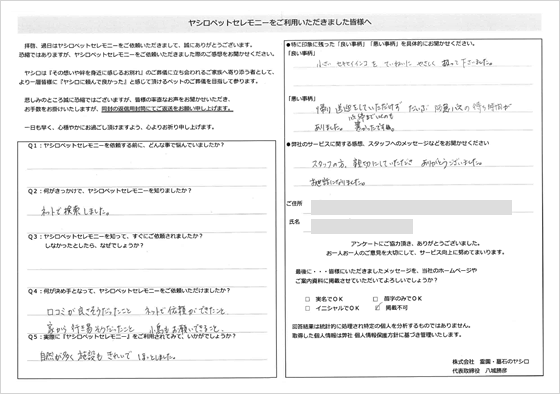 ヤシロペットセレモニーをご利用いただきました皆様へ
拝啓、過日はヤシロペットセレモニーをご依頼いただきまして、誠にありがとうございます。
恐縮ではありますが、ヤシロペットセレモニーをご依頼いただきました際のご感想をお聞かせください。
ヤシロは『その想いや絆を身近に感じるお別れ』のご葬儀に立ち合わさるご家族へ寄り添う者として、
より一層皆様に『ヤシロに頼んで良かった』と感じて頂けるペットのご葬儀を目指して参ります。
悲しみのところ誠に恐縮ではございますが、皆様の率直なお声をお聞かせいただき、
お手数をお掛けいたしますが、同封の返信用封筒にてご返送をお願い申し上げます。
一日も早く、心穏やかにお過ごし頂けますよう、心よりお祈り申し上げます。
Q1：ヤシロペットセレモニーを依頼する前に、どんな事で悩んでいましたか？
Q2：何がきっかけで、ヤシロペットセレモニーを知りましたか？
ネットで検索しました。
Q3：ヤシロペットセレモニーを知って、すぐにご依頼されましたか？
しなかったとしたら、なぜでしょうか？
Q4：何が決め手となって、ヤシロペットセレモニーをご依頼いただけましたか？
口コミが良さそうだったこと ネットで依頼ができたこと
家から行き易そうだったこと 小鳥もお願いできること
Q5：実際に『ヤシロペットセレモニー』をご利用されてみて、いかがでしょうか？
自然が多く施設もきれいでほっとしました。
●特に印象に残った「良い事柄」「悪い事柄」を具体的にお聞かせください。
「良い事柄」
小さいセキセイインコをていねいにやさしく扱って下さいました。
「悪い事柄」
帰り送迎をしていただけず だいぶ 阿急バスの待ち時間が
ありました。
●弊社のサービスに関する感想、スタッフへのメッセージなどをお聞かせください
スタッフの方、親切にしていただき ありがとうございました。
お世話になりました。
ご住所
氏名
アンケートにご協力頂き、ありがとうございました。
お一人お一人のご意見を大切にして、サービス向上に努めてまいります。
最後に・・・皆様にいただきましたメッセージを、当社のホームページや
ご案内資料に掲載させていただいてよろしいでしょうか？
□ 実名でOK □ 顔字のみでOK
□ イニシャルでOK ☑ 掲載不可
回答結果は統計的に処理され特定の個人を分析するものではありません。
取得した個人情報は弊社 個人情報保護方針に基づき管理いたします。
株式会社 霊園・墓石のヤシロ
代表取締役 八城勝彦